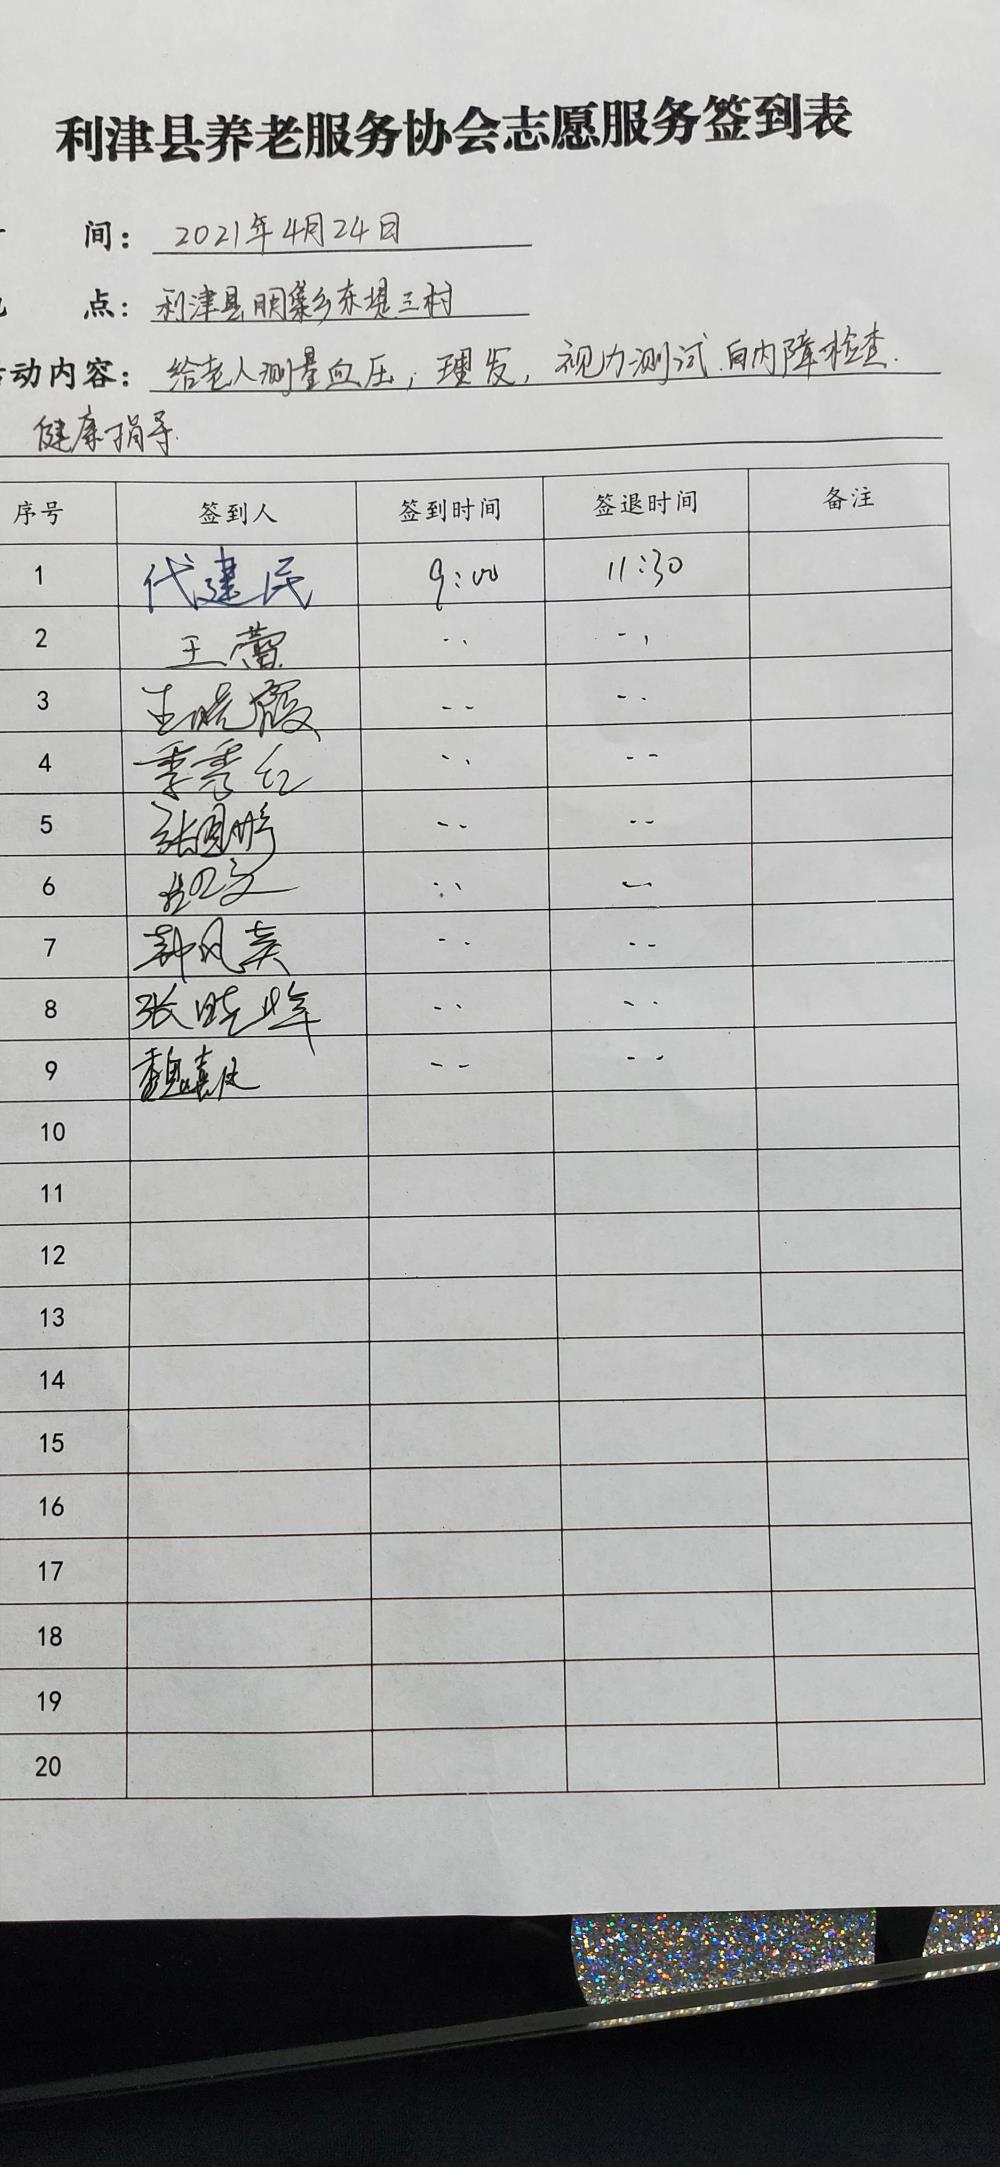 利津县养老服务协会志愿服务签到表
间： 2021年4月24日
点： 利津县明集乡东堤三村
活动内容： 给老人测量血压，理发，视力测试.白内障检查.
健康指导.
序号 签到人 签到时间 签退时间 备注
1 代建民 9:00 11:30
2 王蕾
3 王晓霞
4 季秀红
5 张国彬
6
7 郭凤英
8 张晓辉
9 魏
10
11
12
13
14
15
16
17
18
19
20